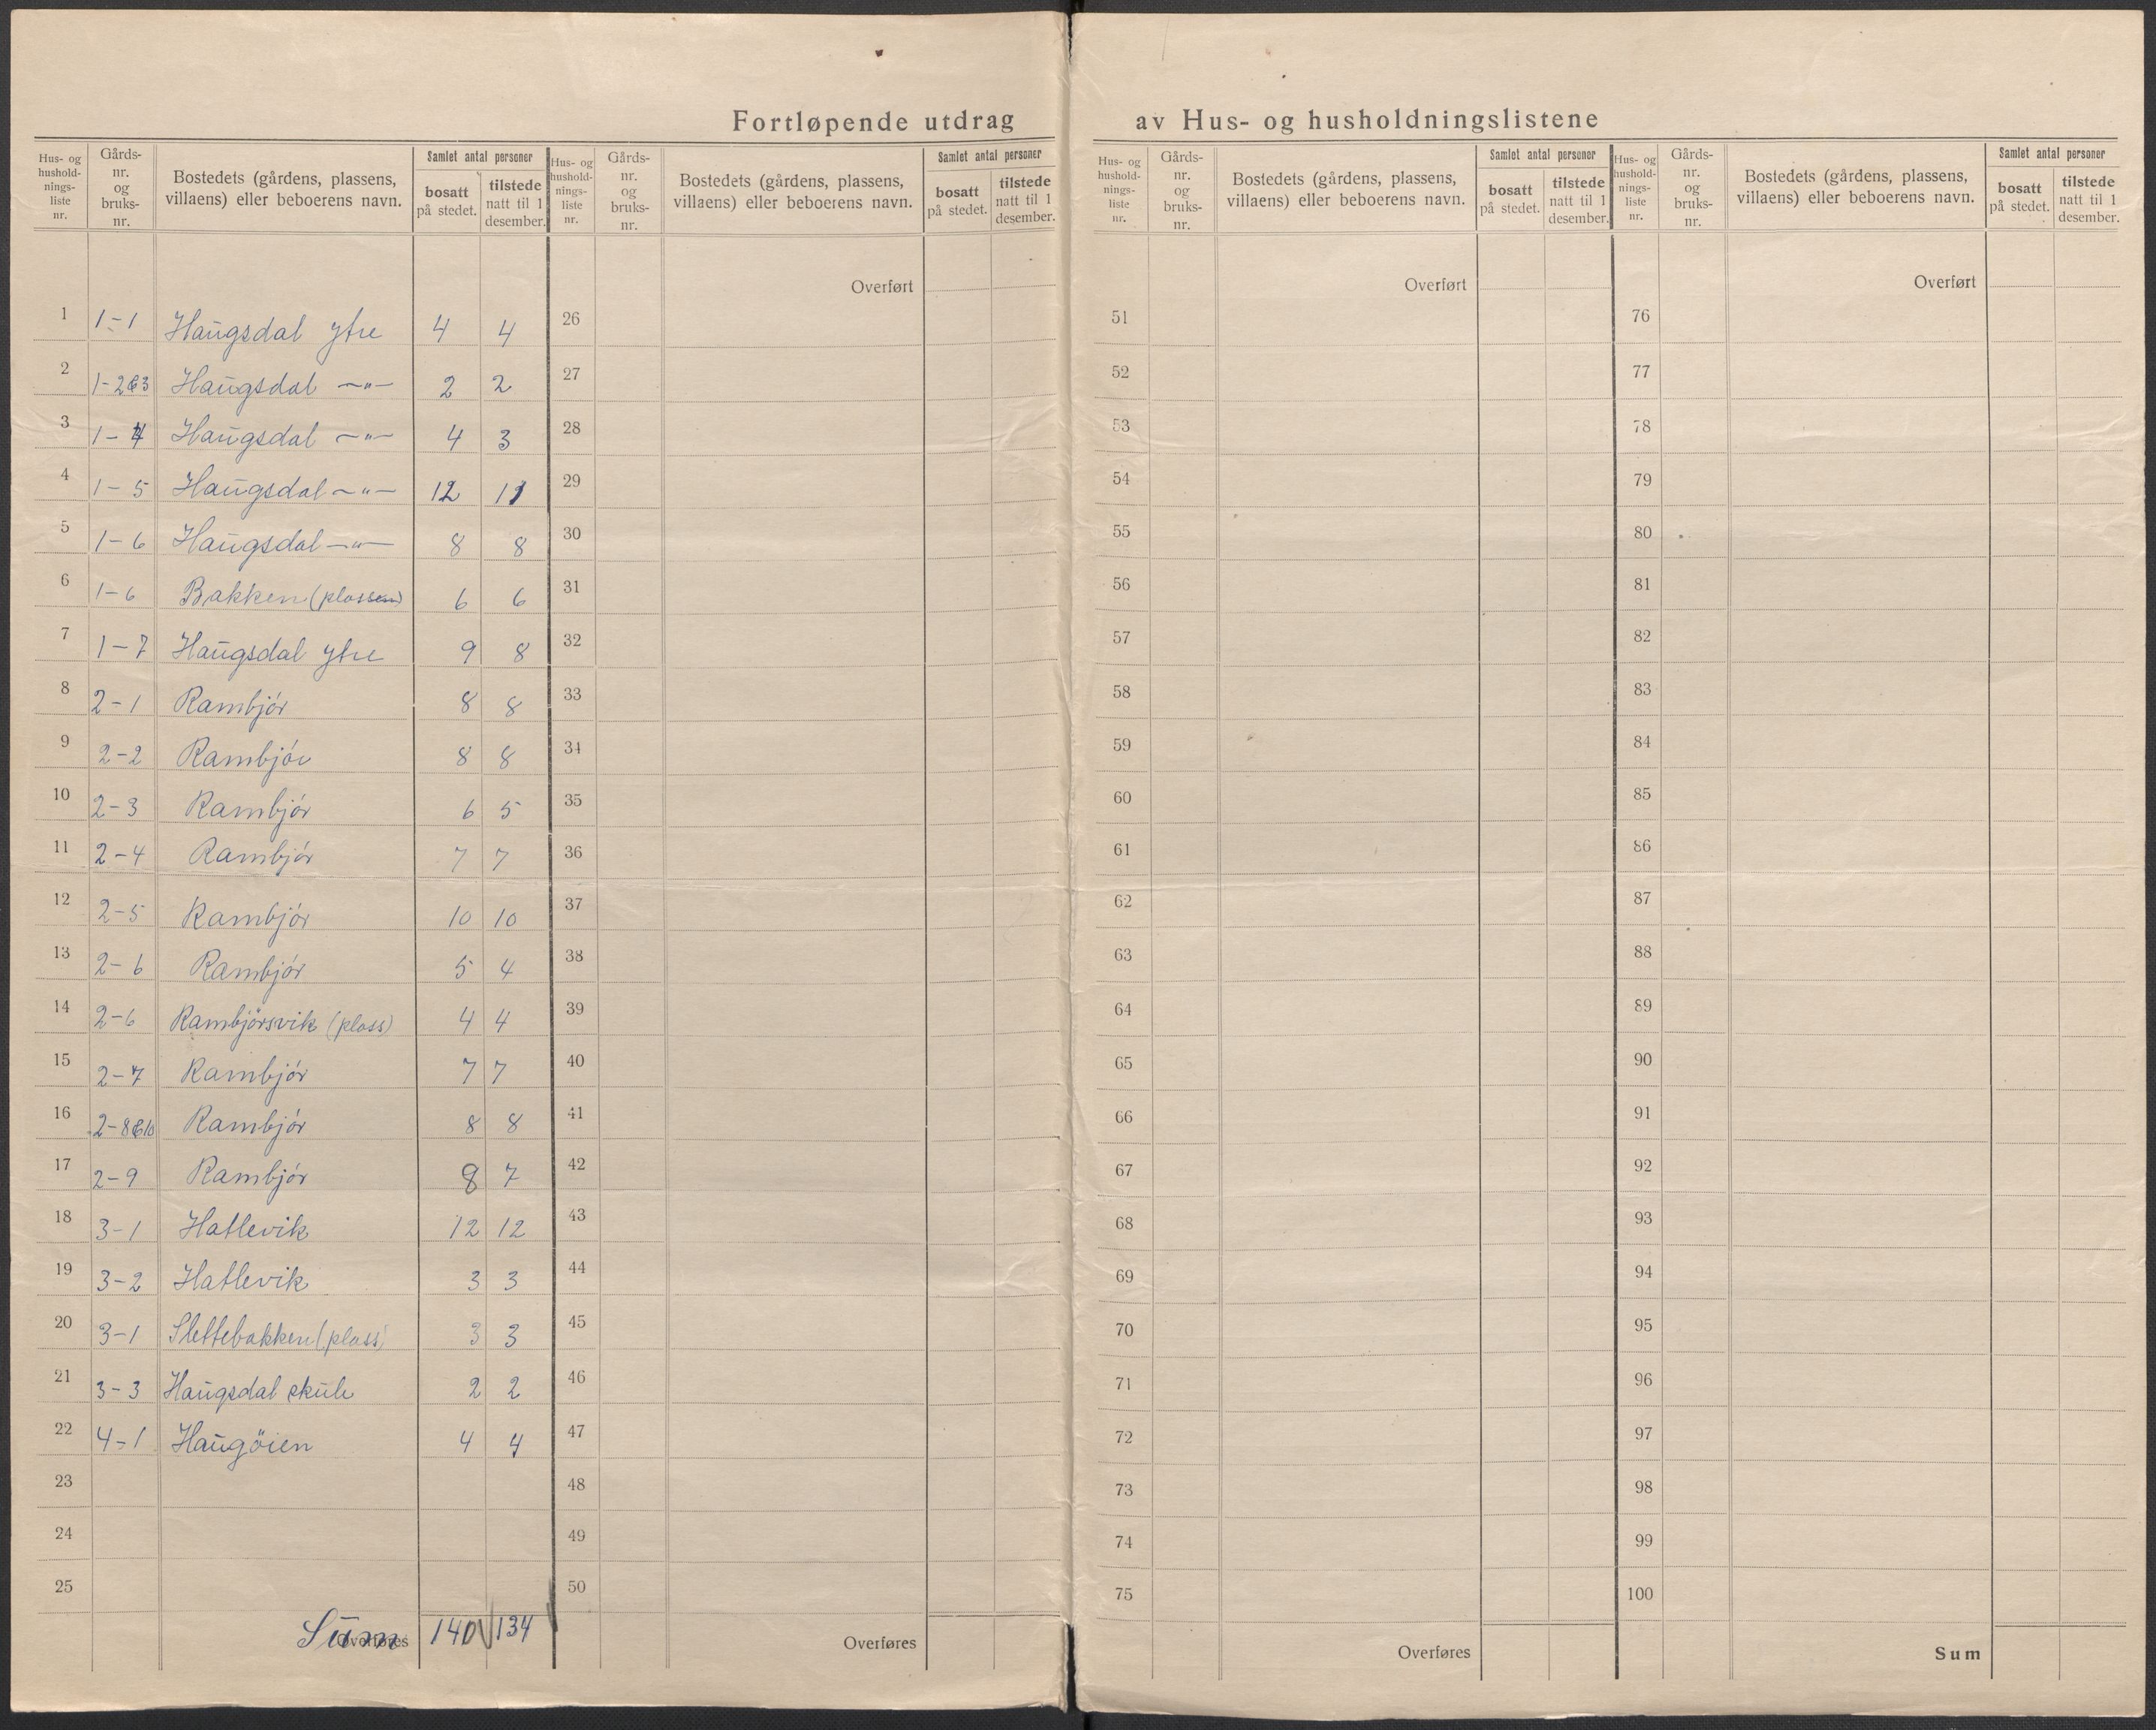 Fortløpende utdrag av Hus- og husholdningslistene
Hus- og hushold-nings-liste nr. | Gårds-nr. og bruks-nr. | Bostedets (gårdens, plassens, villaens) eller beboerens navn. | Samlet antal personer bosatt på stedet. | tilstede natt til 1 desember.
Hus- og hushold-nings-liste nr. | Gårds-nr. og bruks-nr. | Bostedets (gårdens, plassens, villaens) eller beboerens navn. | Samlet antal personer bosatt på stedet. | tilstede natt til 1 desember.
Hus- og hushold-nings-liste nr. | Gårds-nr. og bruks-nr. | Bostedets (gårdens, plassens, villaens) eller beboerens navn. | Samlet antal personer bosatt på stedet. | tilstede natt til 1 desember.
Hus- og hushold-nings-liste nr. | Gårds-nr. og bruks-nr. | Bostedets (gårdens, plassens, villaens) eller beboerens navn. | Samlet antal personer bosatt på stedet. | tilstede natt til 1 desember.
Overført Overført Overført
1 1-1 Haugsdal ytre 4 4 26 51 76
2 1-2&3 Haugsdal -"- 2 2 27 52 77
3 1-4 Haugsdal -"- 4 3 28 53 78
4 1-5 Haugsdal -"- 12 11 29 54 79
5 1-6 Haugsdal -"- 8 8 30 55 80
6 1-6 Bakken (plassen) 6 6 31 56 81
7 1-7 Haugsdal ytre 9 8 32 57 82
8 2-1 Rambjór 8 8 33 58 83
9 2-2 Rambjór 8 8 34 59 84
10 2-3 Rambjór 6 5 35 60 85
11 2-4 Rambjór 7 7 36 61 86
12 2-5 Rambjór 10 10 37 62 87
13 2-6 Rambjór 5 4 38 63 88
14 2-6 Rambjörsvik (plass) 4 4 39 64 89
15 2-7 Rambjór 7 7 40 65 90
16 2-8&10 Rambjór 8 8 41 66 91
17 2-9 Rambjór 8 7 42 67 92
18 3-1 Hatlevik 12 12 43 68 93
19 3-2 Hatlevik 3 3 44 69 94
20 3-1 Slettebakken (plass) 3 3 45 70 95
21 3-3 Haugsdal skule 2 2 46 71 96
22 4-1 Haugöien 4 4 47 72 97
23 48 73 98
24 49 74 99
25 50 75 100
Overføres Sum 140 134 Overføres Overføres Sum